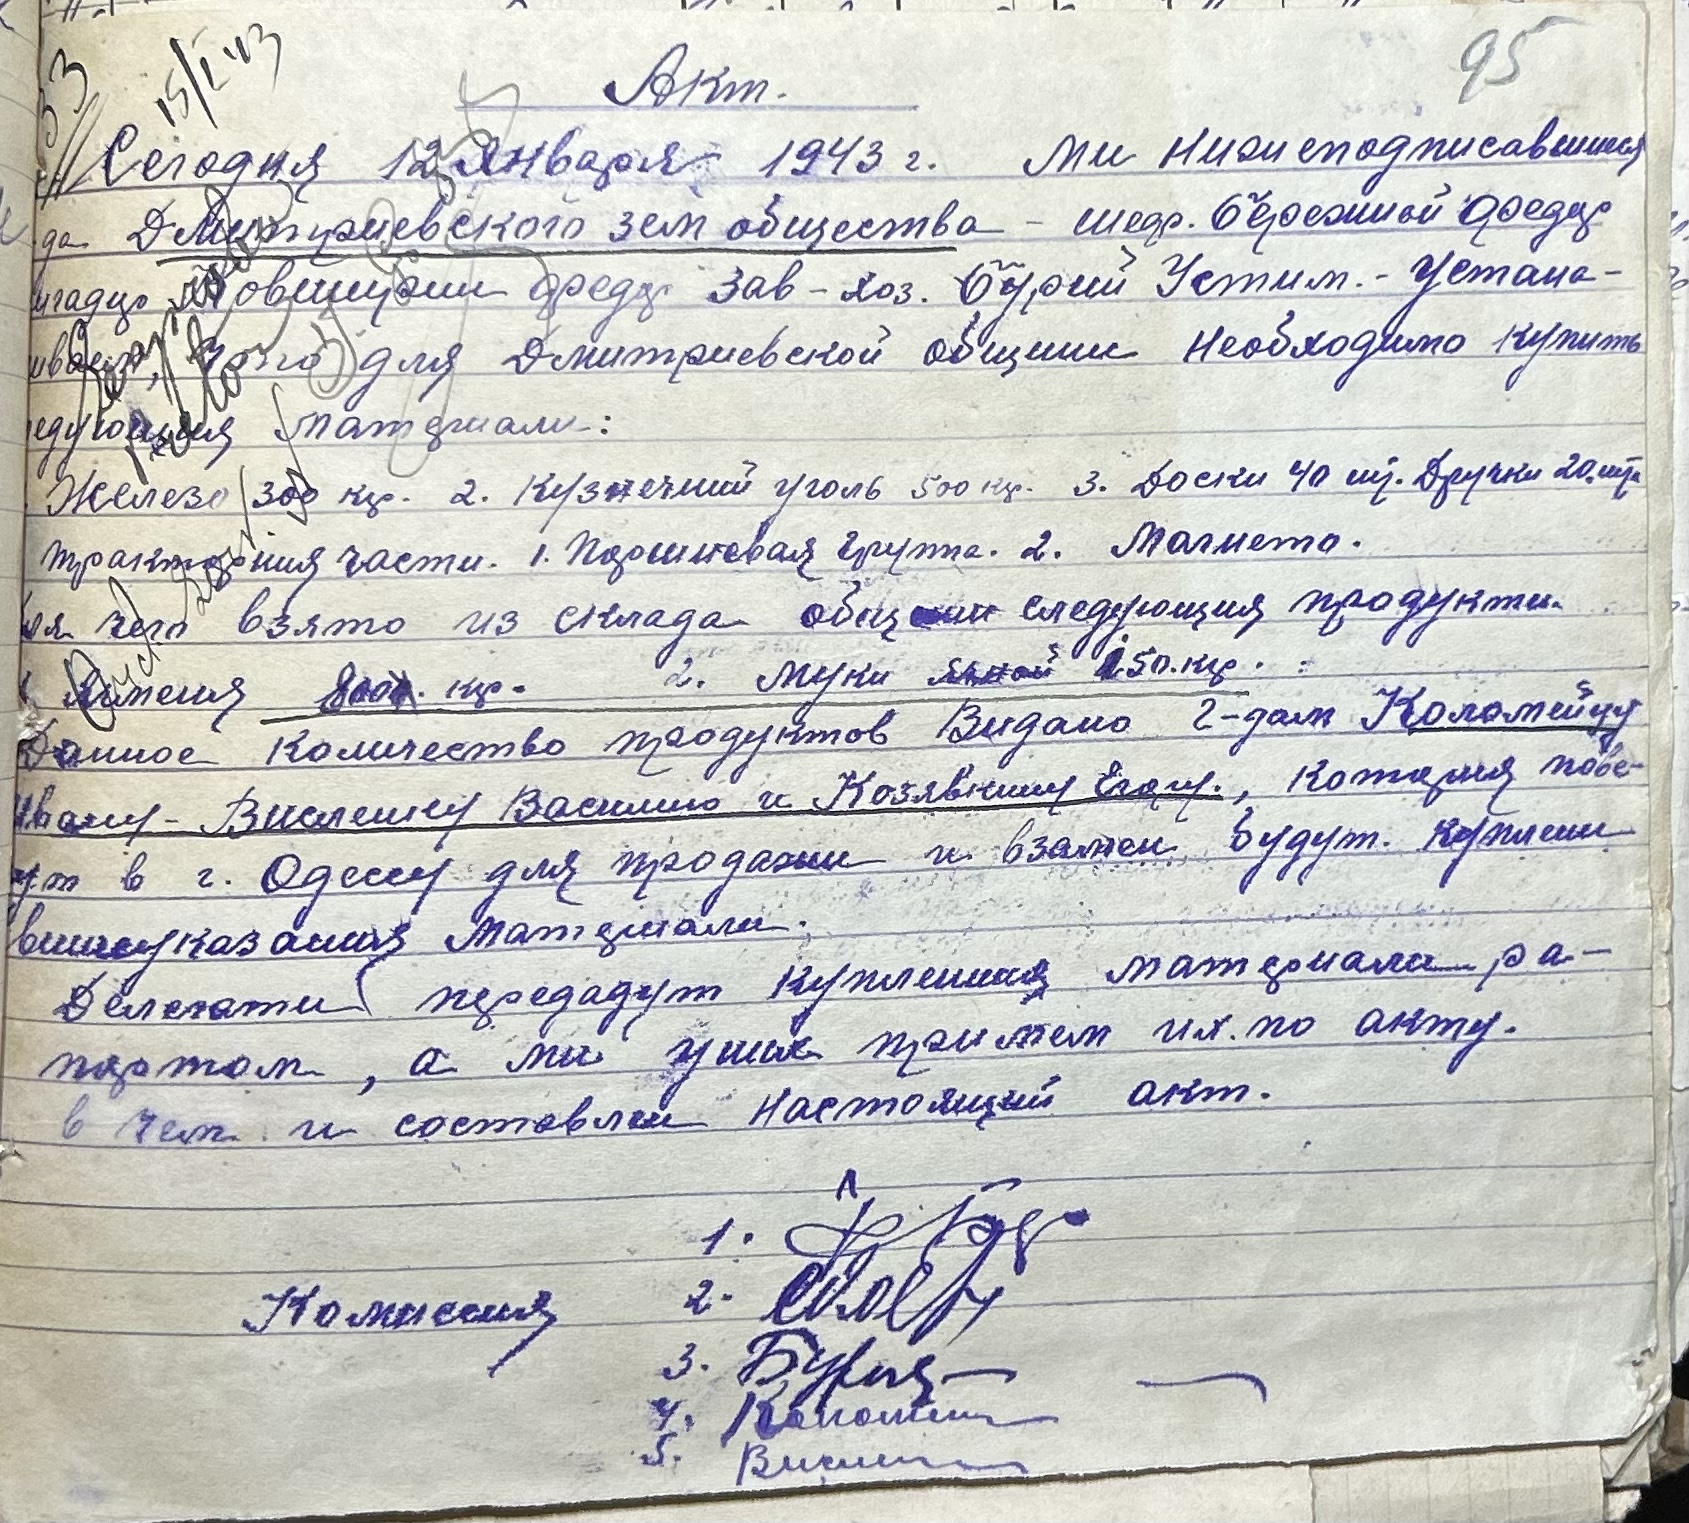 95
33
15/I 43
Акт.
Сегодня 12 Января 1943 г. Ми нижеподписавшиеся
да Дмитриевского зем общества - шедр. Бережной Федор
игадир Федор Зав-хоз. Бурий Устим. - Устана-
иваем, что для Дмитриевской общини необходимо купить
едующия материали:
Железо 300 кгр. 2. Кузнечний уголь 500 кгр. 3. Доски 40 шт. Дручки 20 штук
тракторния части. 1. Поршневая группа. 2. Магнето.
для чего взято из склада общини следующия продукти.
Ячменя 800 кгр. 2. Муки 150 кгр.
Данное количество продуктов Видано г-дам Коломейцу
Ивану - Василию и Егору., котория пове-
ут в г. Одессу для продажи и взамен будут куплени
вишеуказания материали.
Делегати передадут купления материали ра-
портом, а ми у них примем их по акту.
в чем и составлен настоящий акт.
Комиссия
1.
2.
3. Бурий
4. Коломи
5.